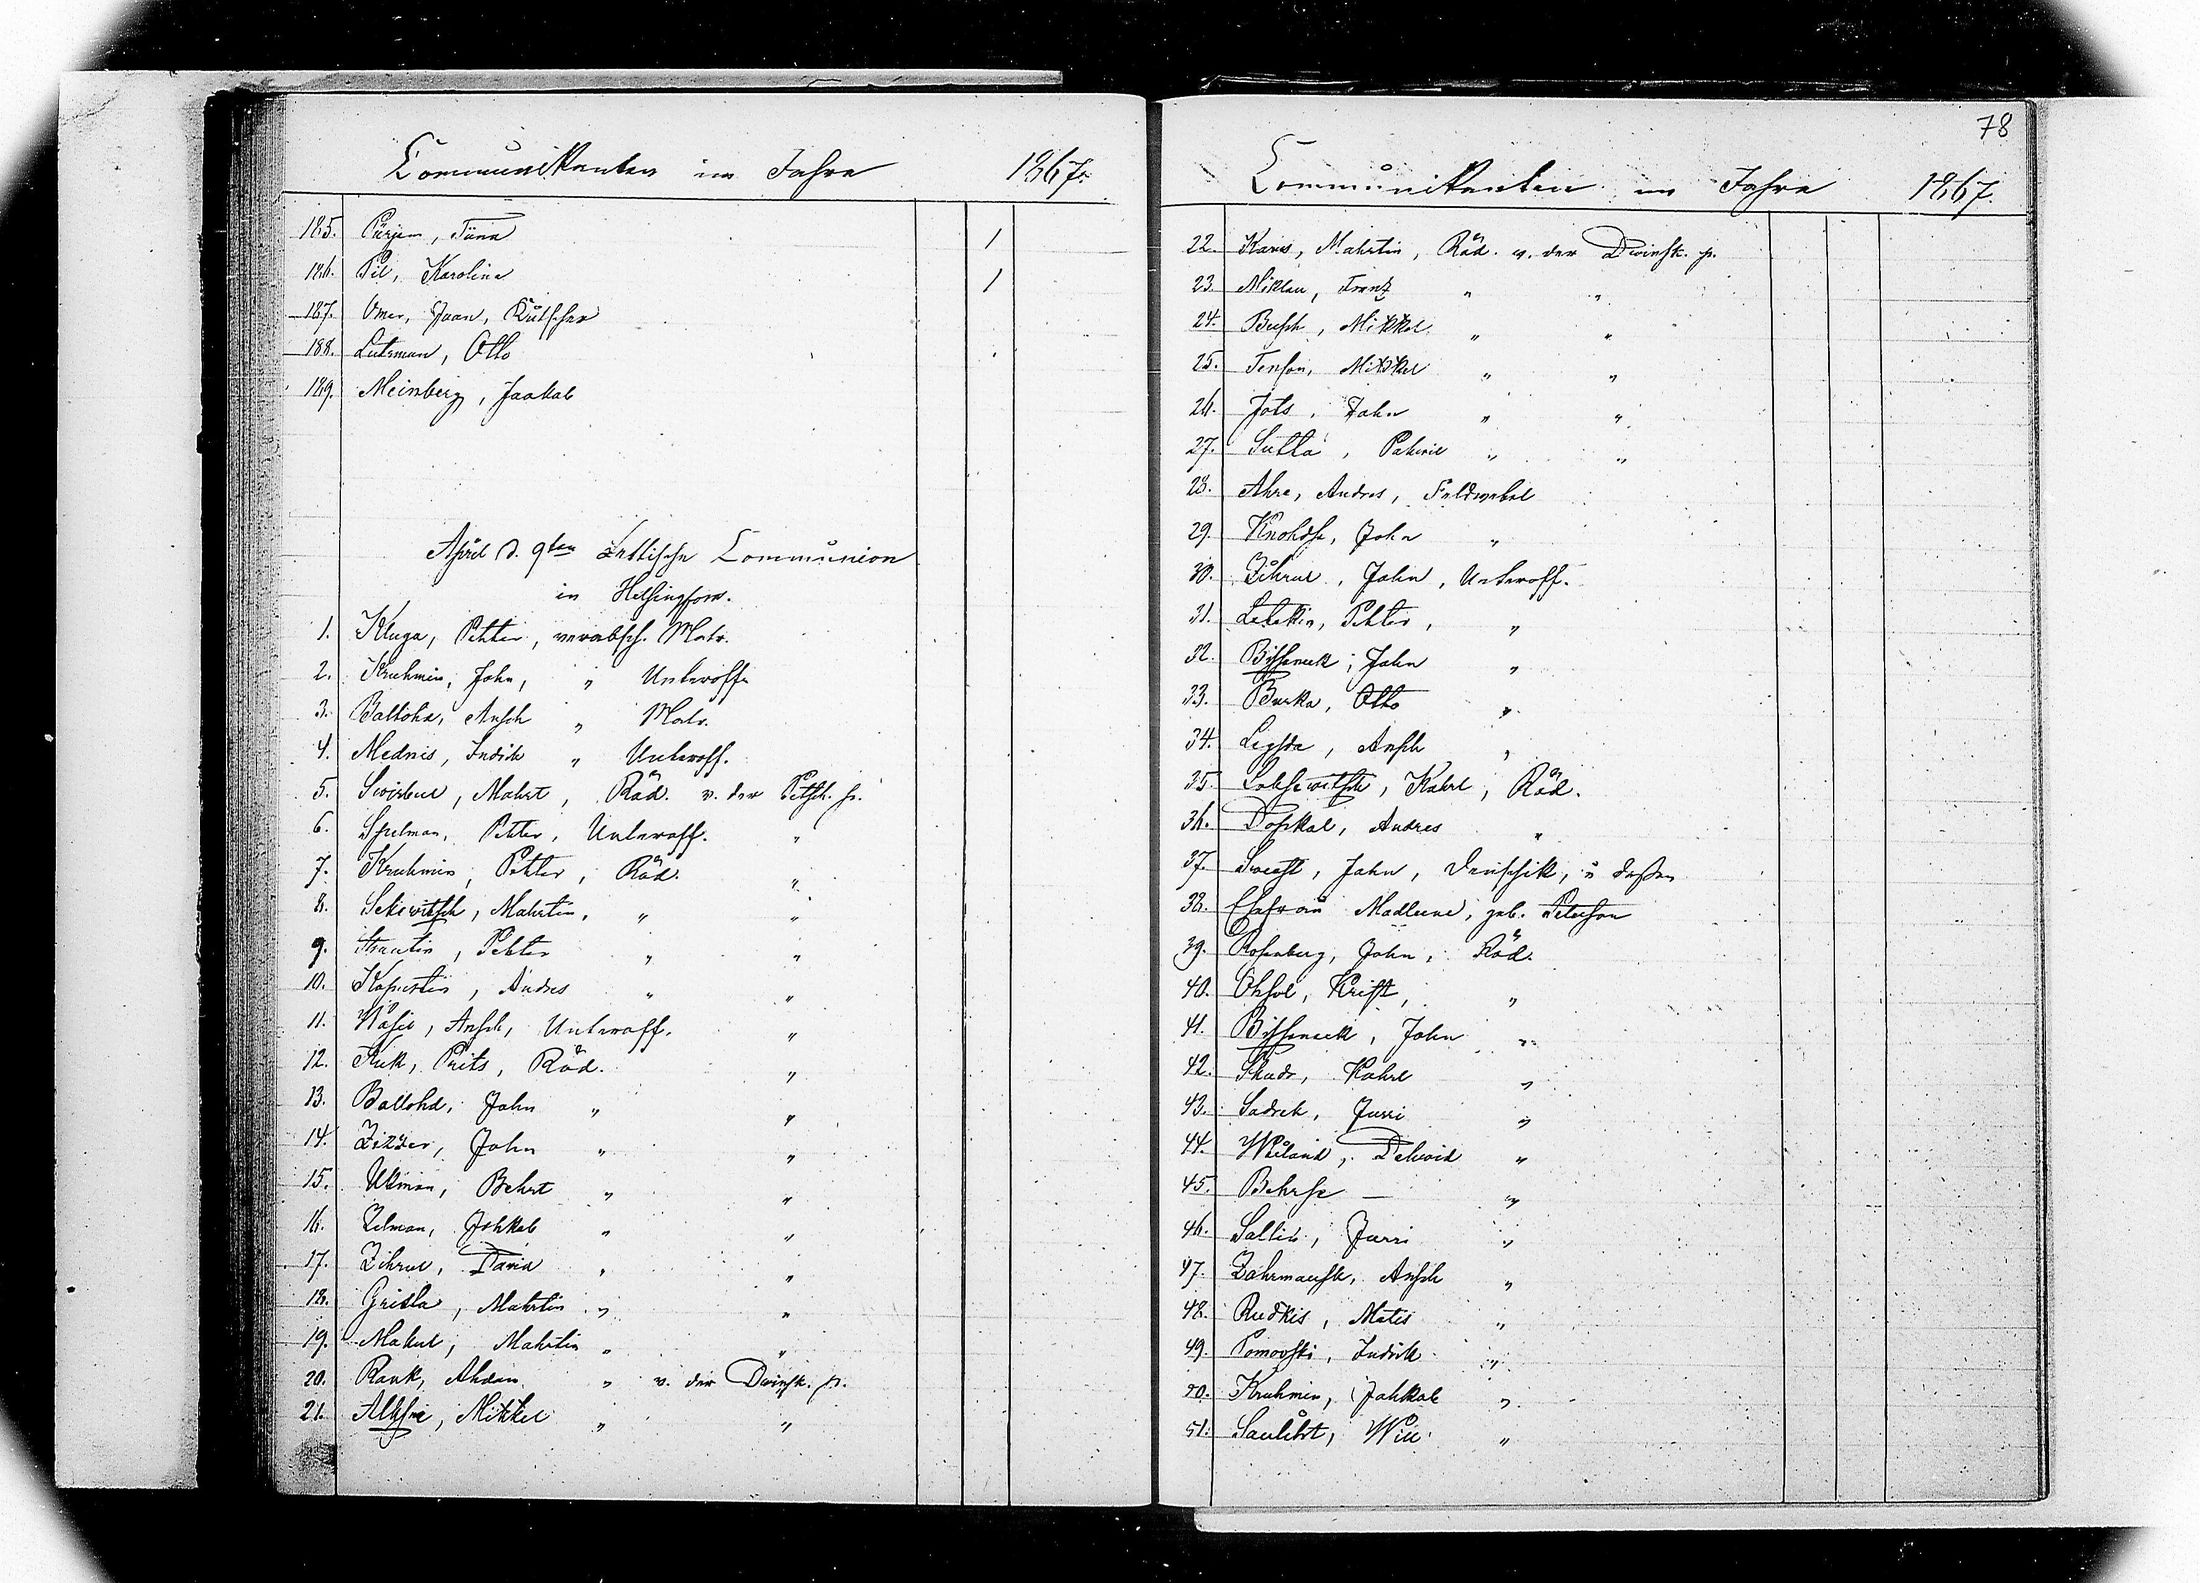 Communikanten im Jahre 1867.
185. Pärjen, Tiina 1
186. Pil, Karolina 1
187. Omer, Jaan, Kutscher
188. Lutzman, Otto
189. Meinberg, Jaakab
April d. 9ten Lettische Communion
in Helsingfors.
1. Kluga, Pehter, verabsch. Matr.
2. Kruhmin, Jahn, " Unteroff.
3. Ballohd, Ansch " Matr.
4. Mednis, Indrik " Unteroff.
5. Swirbul, Mahrt, Räd. v. der Petsch. p.
6. Spelman, Pehter, Unteroff. "
7. Kruhmin, Pehter, Räd. "
8. Sekewitsch, Mahrtin, " "
9. Strautin, Pehter " "
10. Kapustin, Andres " "
11. Ansch, Unteroff. "
12. Kuk, Prits, Räd. "
13. Ballohd, Jahn " "
14. Zizzer, John " "
15. Ulman, Behrt " "
16. Zelman, Jehkab " "
17. Zihrul, David " "
18. Grisla, Mahrtin " "
19. Makul, Mahrtin " "
20. Rauk, Ahdam " v. der Dwinsk. p.
21. Alksne, Mikkel " "
78
Communikanten im Jahre 1867.
22. Mahrtin, Räd. v. der Dwinsk. p.
23. Miklau, Franz " "
24. Busch, Mikkel " "
25. Jenson, Mikkel " "
26. Jots, Jahn " "
27. Sutta, Pahwil " "
28. Ahre, Andres, Feldwebel
29. John "
30. Zihrul, Jahn, Unteroff.
31. Pehter, "
32. Bisseneek, Jahn "
33. Burka, Otto "
34. Ligsda, Ansch "
35. Kahrl, Räd.
36. Dopkal, Andres "
37. Jahn, Denschik, u dessen
38. Ehefrau Madleene, geb. Peterson
39. Rosenberg, John, Räd.
40. Ohsol, Krist, "
41. Bisseneek, John "
42. Skudr, Kahrl "
43. Sadrek, Jurri "
44. Wiland, Dahwid "
45. Behrse — "
46. Sallin, Jurri "
47. Ansch "
48. Rudkis, Matis "
49. Pomovski, Indrik "
50. Kruhmin, Jahkab "
51. Saulihrt, Will "